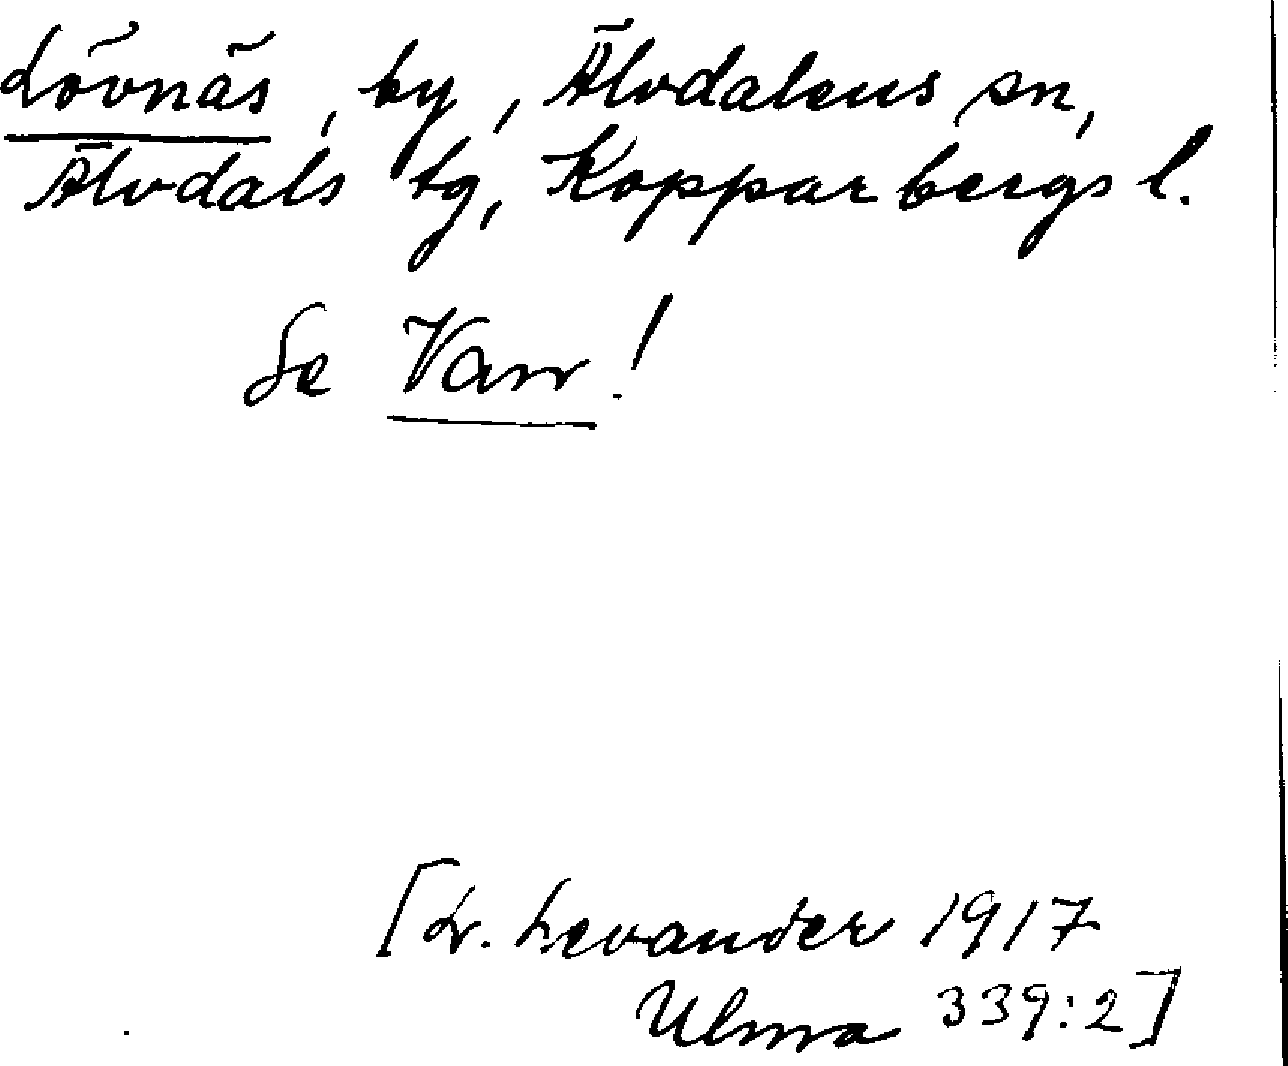 Lövnäs, by, Älvdalens sn,
Älvdals tg, Kopparbergs l.
Se Van!
[L. Levander 1917
Ulma 339:2]